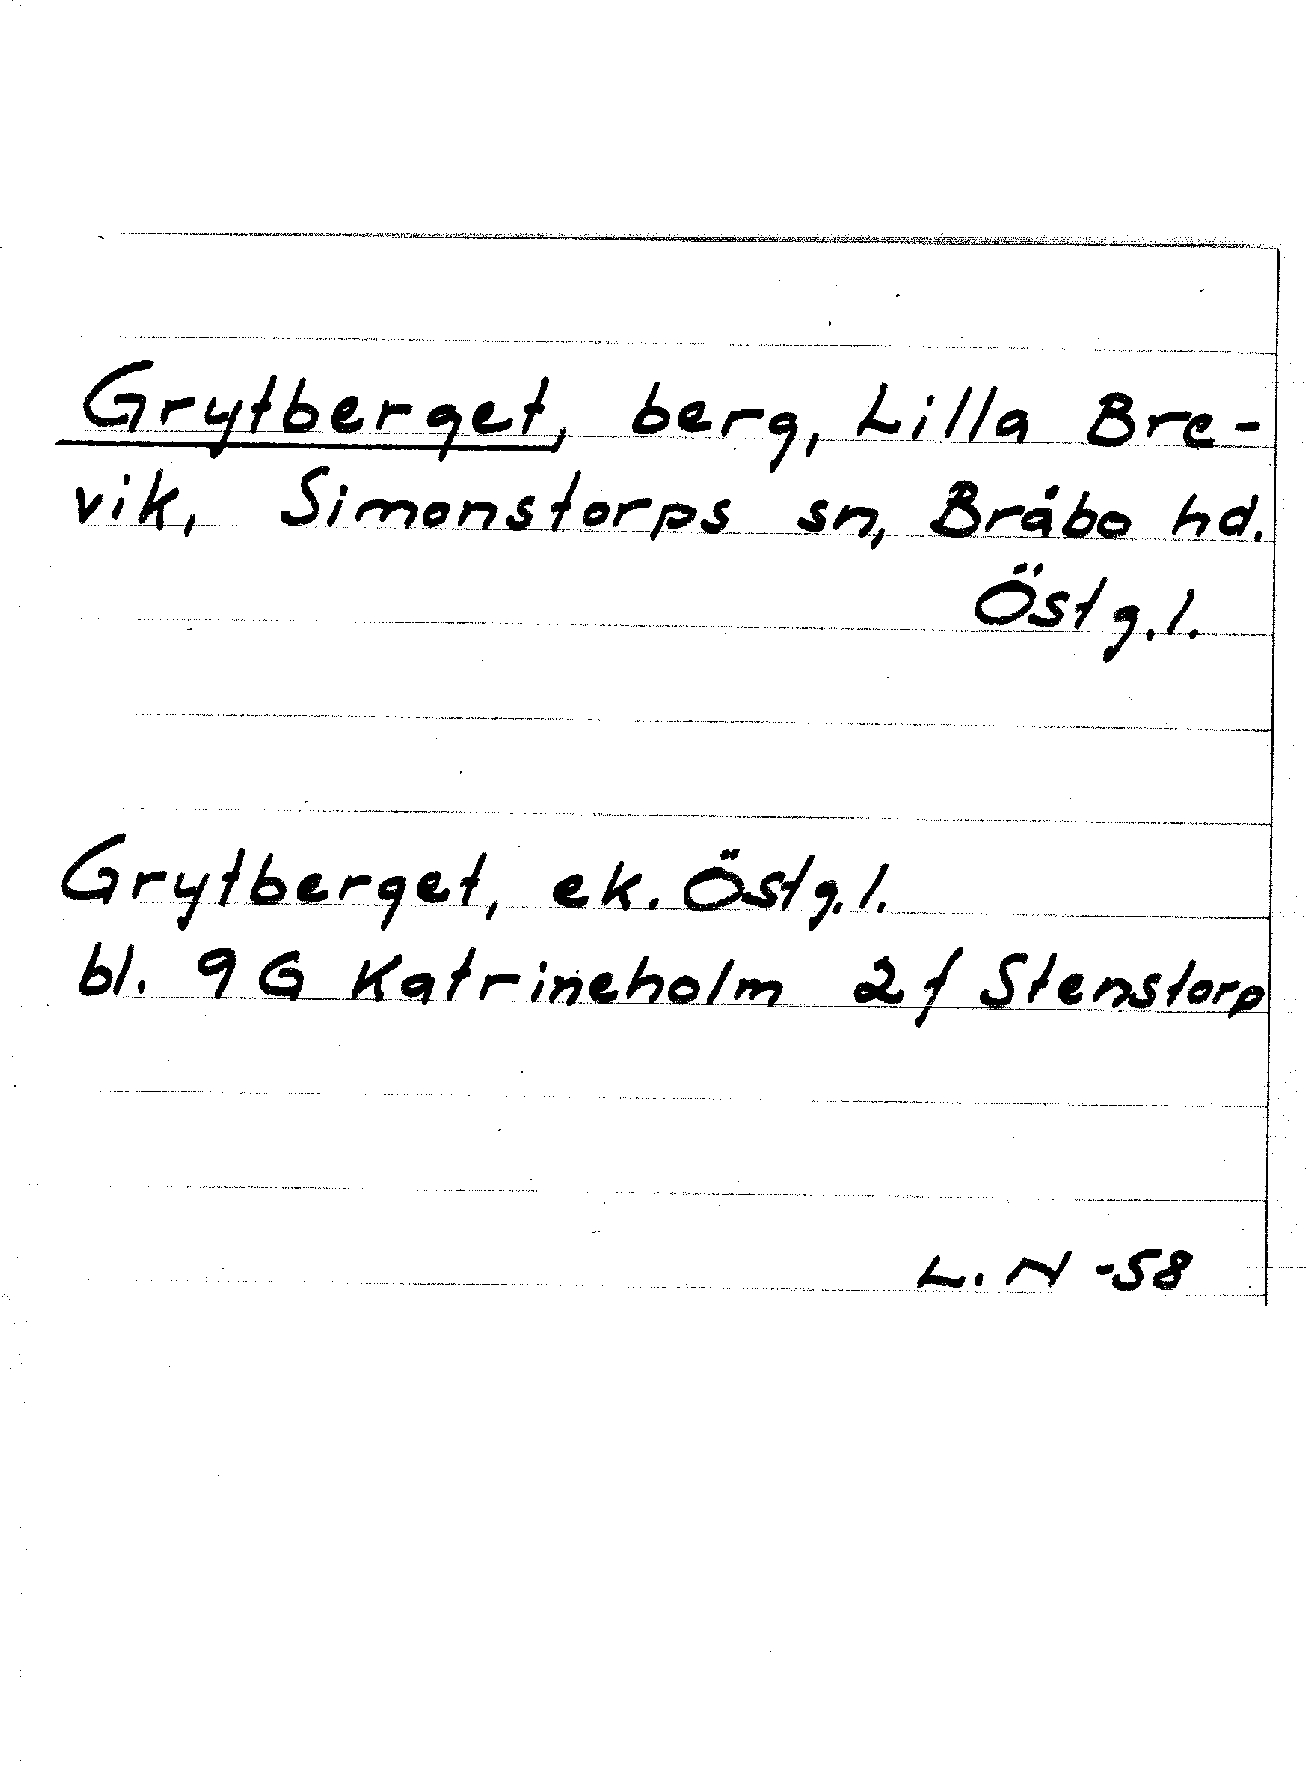 Grytberget, berg, Lilla Bre-
vik, Simonstorps sn, Bråbo hd.
Östg.l.
Grytberget, ek. Östg.l.
bl. 9 G Katrineholm 2 f Stenstorp
L. N -58